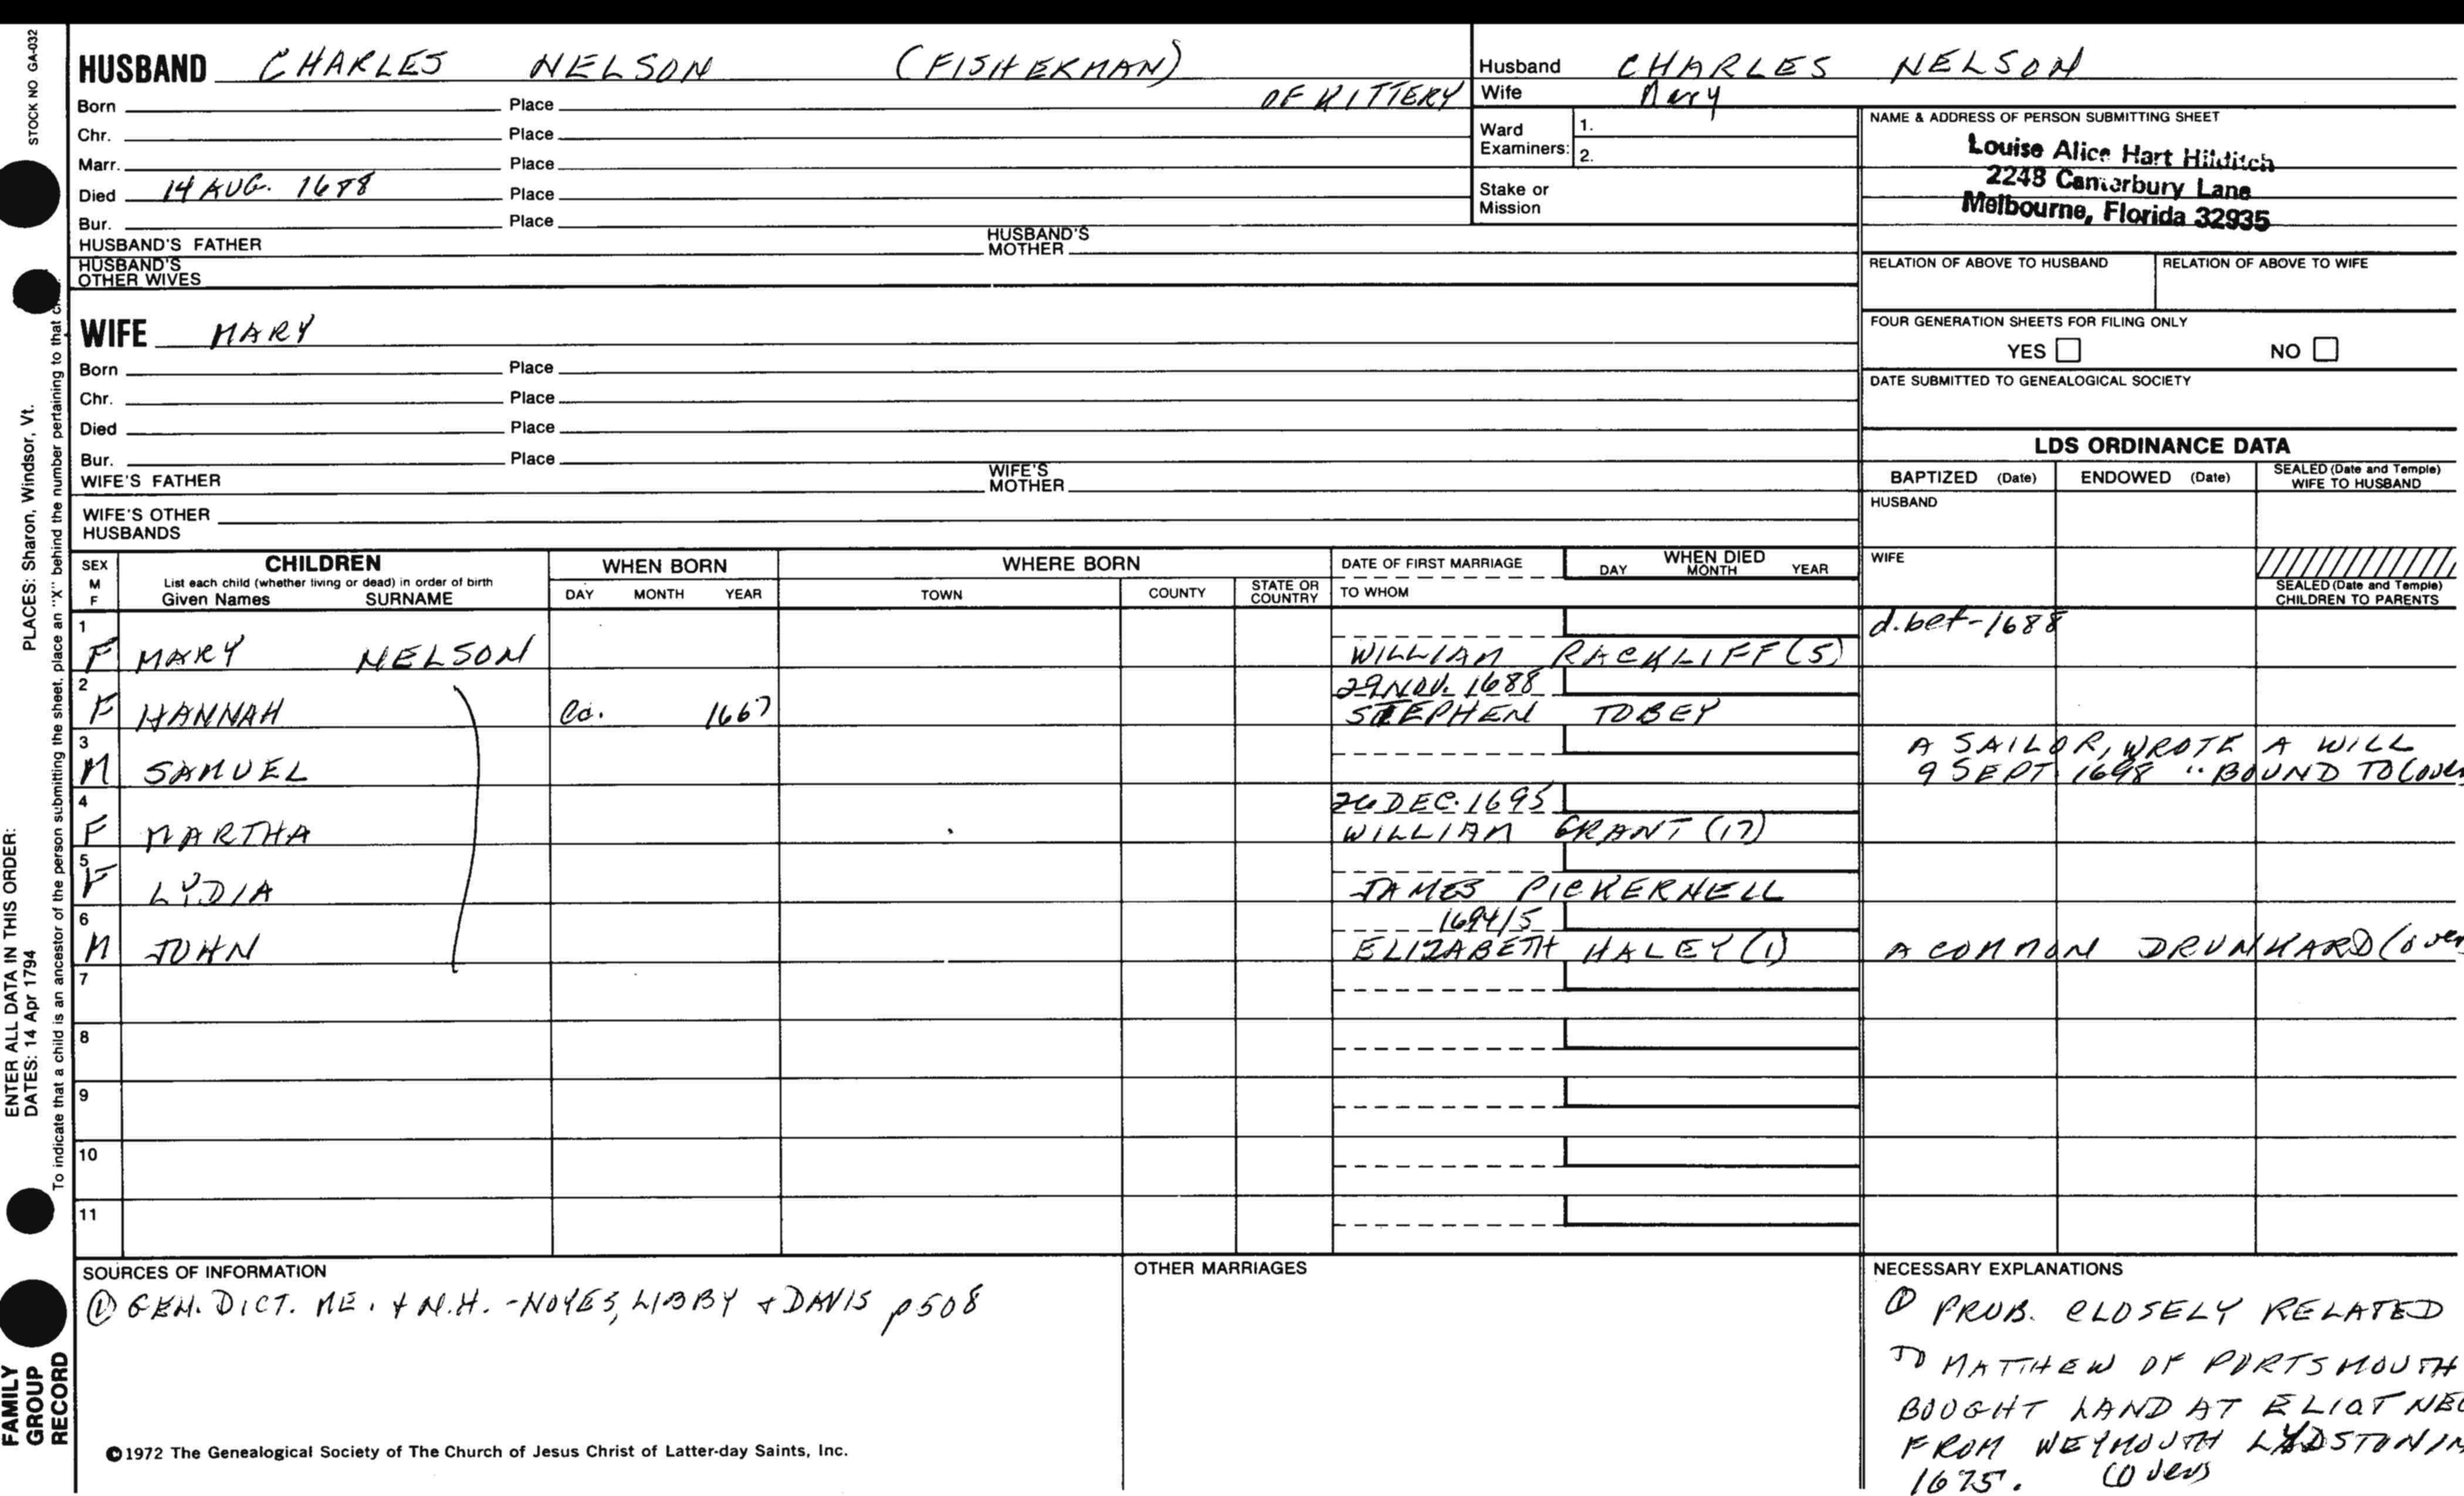 STOCK NO GA-032
HUSBAND CHARLES NELSON (FISHERMAN)
OF KITTERY
Born Place
Chr. Place
Marr. Place
Died 14 AUG. 1688 Place
Bur. Place
HUSBAND'S FATHER HUSBAND'S MOTHER
HUSBAND'S
OTHER WIVES
Husband CHARLES NELSON
Wife Mary
Ward
Examiners: 1.
2.
Stake or
Mission
NAME & ADDRESS OF PERSON SUBMITTING SHEET
Louise Alice Hart Hilditch
2248 Canterbury Lane
Melbourne, Florida 32935
RELATION OF ABOVE TO HUSBAND RELATION OF ABOVE TO WIFE
FOUR GENERATION SHEETS FOR FILING ONLY
YES NO
DATE SUBMITTED TO GENEALOGICAL SOCIETY
WIFE MARY
Born Place
Chr. Place
Died Place
Bur. Place
WIFE'S FATHER WIFE'S MOTHER
WIFE'S OTHER
HUSBANDS
LDS ORDINANCE DATA
BAPTIZED (Date) ENDOWED (Date) SEALED (Date and Temple)
WIFE TO HUSBAND
HUSBAND
WIFE
SEALED (Date and Temple)
CHILDREN TO PARENTS
SEX
M
F
CHILDREN
List each child (whether living or dead) in order of birth
Given Names SURNAME
WHEN BORN
DAY MONTH YEAR
WHERE BORN
TOWN COUNTY STATE OR
COUNTRY
DATE OF FIRST MARRIAGE
TO WHOM
WHEN DIED
DAY MONTH YEAR
1 d.bef-1688
F MARY NELSON WILLIAM RACKLIFF (5)
2 29 NOV. 1688
F HANNAH Ca. 1667 STEPHEN TOBEY
3 A SAILOR, WROTE A WILL
M SAMUEL 9 SEPT. 1698 "BOUND TO (over
4 26 DEC. 1695
F MARTHA WILLIAM GRANT (17)
5
F LYDIA JAMES PICKERNELL
6 1694/5
M JOHN ELIZABETH HALEY (1) A COMMON DRUNKARD (over
7
8
9
10
11
SOURCES OF INFORMATION
① GEN. DICT. ME. + N.H. - NOYES, LIBBY + DAVIS p508
OTHER MARRIAGES
NECESSARY EXPLANATIONS
① PROB. CLOSELY RELATED
TO MATTHEW OF PORTSMOUTH
BOUGHT LAND AT ELIOT NEC
FROM WEYMOUTH LYDSTON IN
1675. (over)
©1972 The Genealogical Society of The Church of Jesus Christ of Latter-day Saints, Inc.
PLACES: Sharon, Windsor, Vt.
ENTER ALL DATA IN THIS ORDER:
DATES: 14 Apr 1794
To indicate that a child is an ancestor of the person submitting the sheet, place an "X" behind the number pertaining to that
FAMILY
GROUP
RECORD